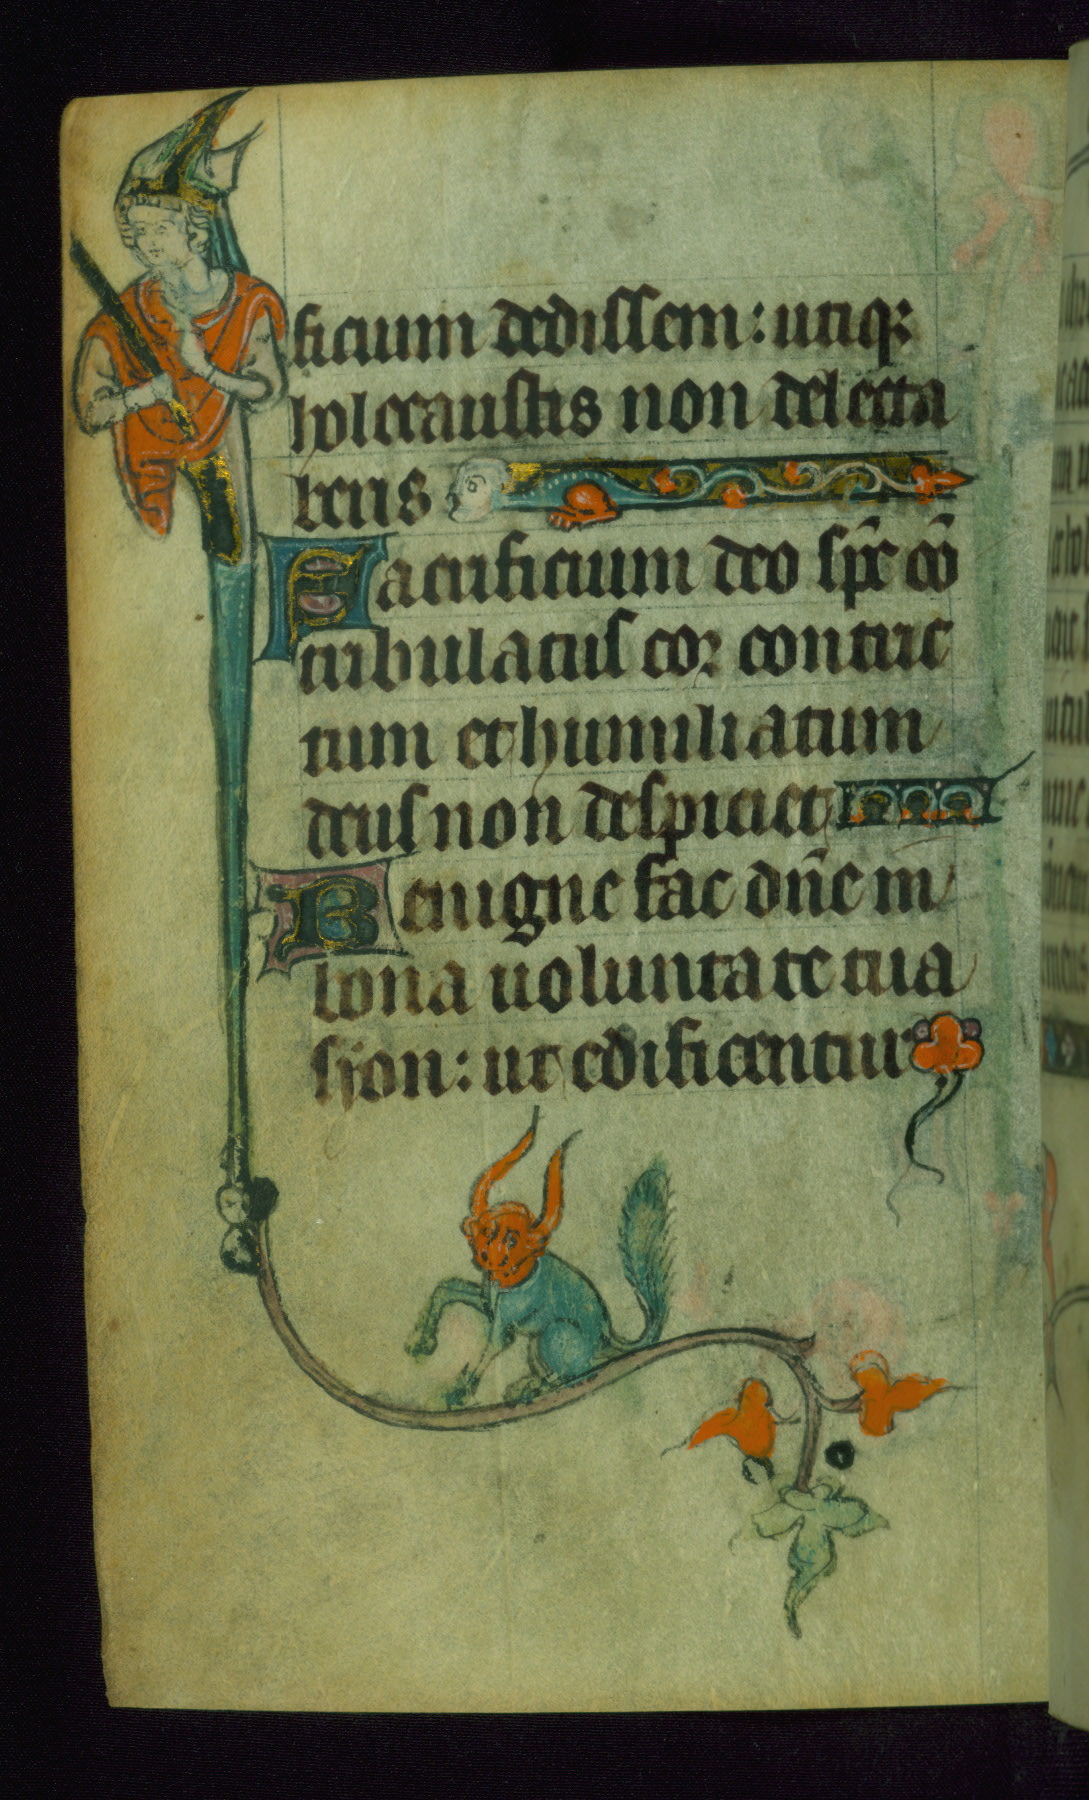 ficium dedissem: utiq;
holocaustis non delecta
beris
Sacrificium deo sp̄c cō
tribulatus cor contric
tum et humiliatum
deus non despiciet
Benigne fac dn̄e in
bona uoluntate tua
syon: ut edificentur